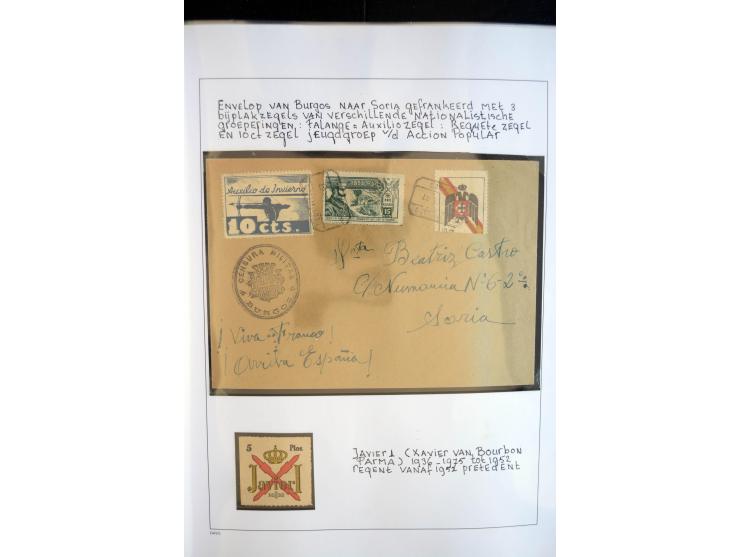 Envelop van Burgos naar Soria gefrankeerd met 3
bijplakzegels van verschillende nationalistische
groeperingen: Falange = Auxiliozegel: Requete zegel
en 10ct zegel jeugdgroep v/d Action Popular
Auxilio de Invierno
10 cts.
15
CENSURA MILITAR
BURGOS
Beatriz Castro
C/Numancia Nº 6-2º
Soria
¡Viva Franco!
¡Arriba España!
5 Ptas
Javier I
Javier 1 (Xavier van Bourbon
Parma) 1936-1975 tot 1952
regent vanaf 1952 pretedent
DAVO